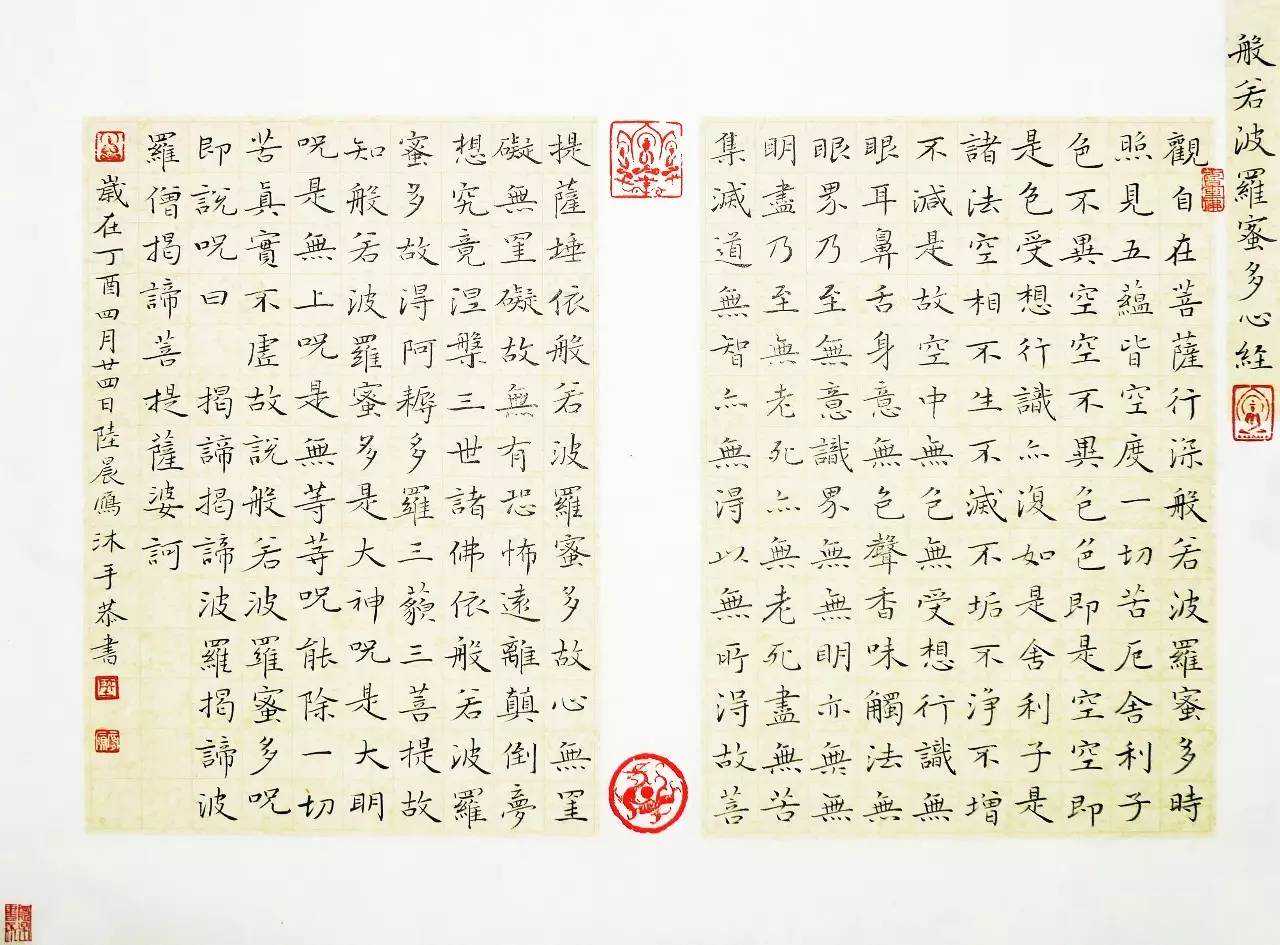 般若波羅蜜多心経
觀自在菩薩行深般若波羅蜜多時
照見五蘊皆空度一切苦厄舍利子
色不異空空不異色色即是空空即
是色受想行識亦復如是舍利子是
諸法空相不生不滅不垢不淨不增
不減是故空中無色無受想行識無
眼耳鼻舌身意無色聲香味觸法無
眼界乃至無意識界無無明亦無無
明盡乃至無老死亦無老死盡無苦
集滅道無智亦無得以無所得故菩
提薩埵依般若波羅蜜多故心無罣
礙無罣礙故無有恐怖遠離顛倒夢
想究竟涅槃三世諸佛依般若波羅
蜜多故得阿耨多羅三藐三菩提故
知般若波羅蜜多是大神呪是大明
呪是無上呪是無等等呪能除一切
苦真實不虛故說般若波羅蜜多呪
即說呪曰 揭諦揭諦波羅揭諦波
羅僧揭諦菩提薩婆訶
歲在丁酉四月廿四日陸晨鴈沐手恭書